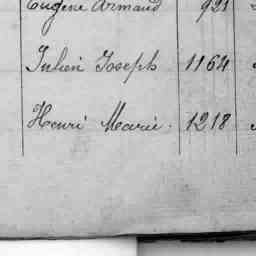 Eugène Armand 921
Julien Joseph 1164
Henri Marie. 1218